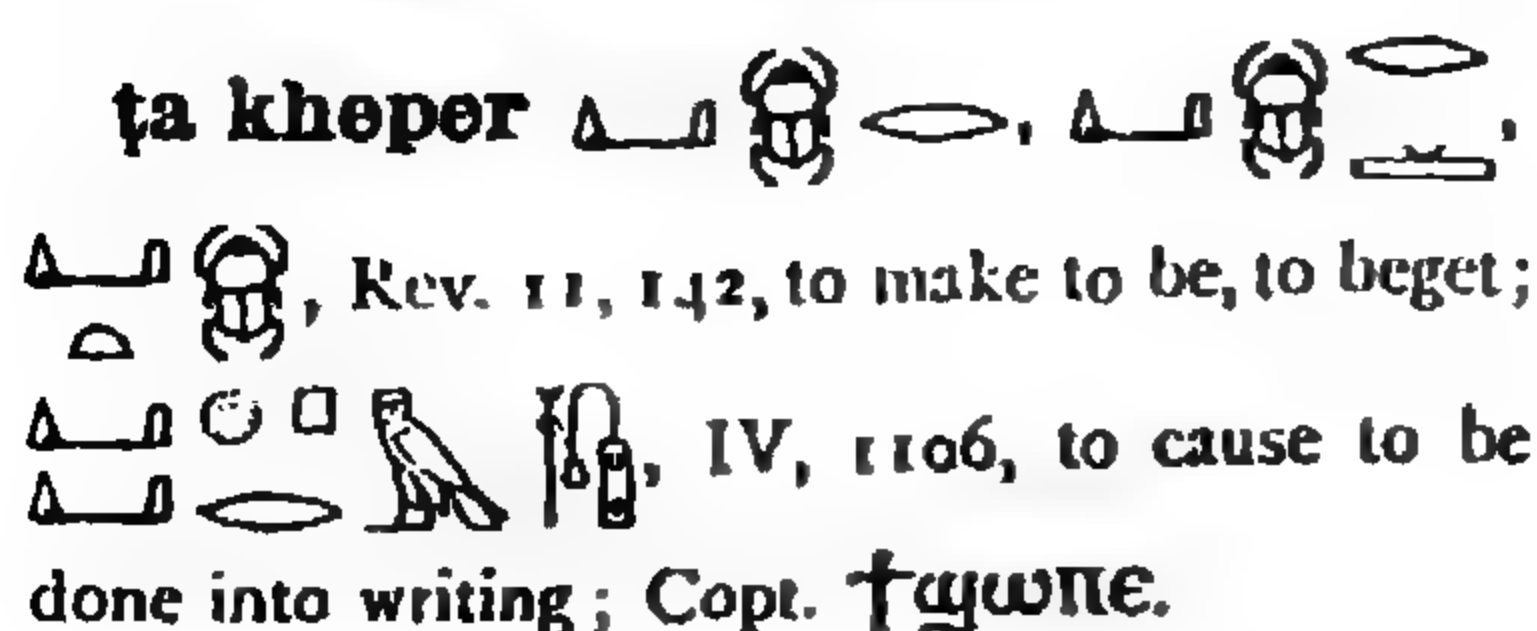 ṭa kheper 𓂞𓆣𓂋, 𓂞𓆣𓂋𓏛,
𓂞𓏏𓆣, Rev. 11, 142, to make to be, to beget;
𓂞𓂞𓐍𓊪𓂋𓅓𓏞, IV, 1106, to cause to be
done into writing; Copt. ϯϣⲱⲡⲉ.